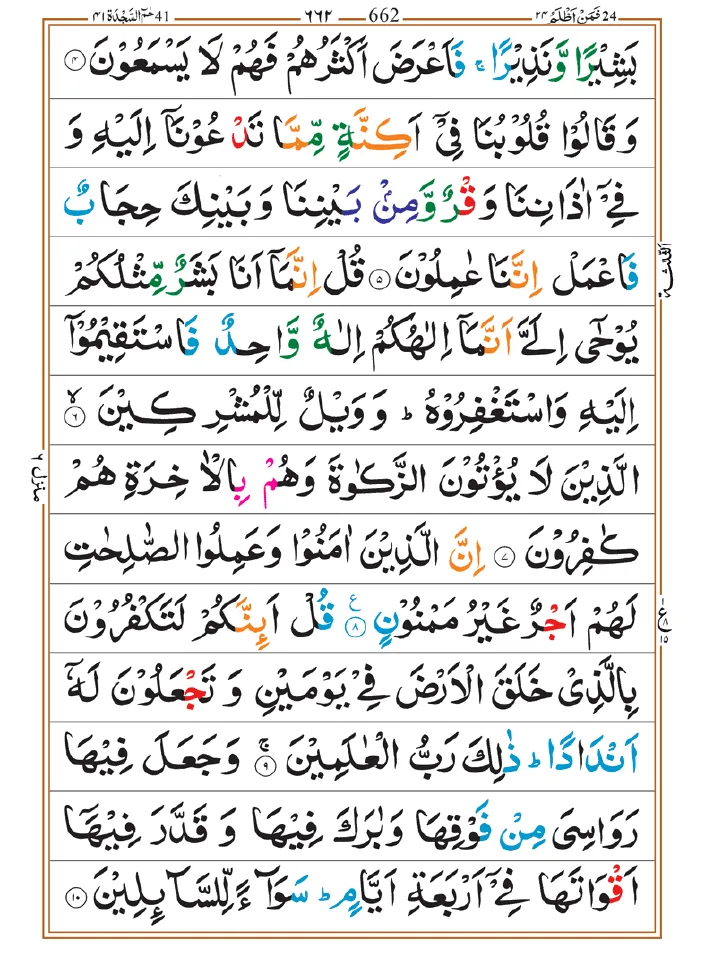 فَمَنْ اَظْلَمُ ٢٤ 24 662 ٦٦٢ حٰمٓ السَّجْدَة ٤١ 41
بَشِيْرًا وَّنَذِيْرًا ۚ فَاَعْرَضَ اَكْثَرُهُمْ فَهُمْ لَا يَسْمَعُوْنَ ۴
وَ قَالُوْا قُلُوْبُنَا فِيْۤ اَكِنَّةٍ مِّمَّا تَدْعُوْنَاۤ اِلَيْهِ وَ
فِيْۤ اٰذَانِنَا وَقْرٌ وَّمِنْۢ بَيْنِنَا وَبَيْنِكَ حِجَابٌ
فَاعْمَلْ اِنَّنَا عٰمِلُوْنَ ۵ قُلْ اِنَّمَاۤ اَنَا بَشَرٌ مِّثْلُكُمْ
الثلثة
يُوْحٰۤى اِلَيَّ اَنَّمَاۤ اِلٰهُكُمْ اِلٰهٌ وَّاحِدٌ فَاسْتَقِيْمُوْۤا
اِلَيْهِ وَاسْتَغْفِرُوْهُ ؕ وَوَيْلٌ لِّلْمُشْرِكِيْنَ ۙ ۶
الَّذِيْنَ لَا يُؤْتُوْنَ الزَّكٰوةَ وَهُمْ بِالْاٰخِرَةِ هُمْ
منزل ٦
كٰفِرُوْنَ ۷ اِنَّ الَّذِيْنَ اٰمَنُوْا وَعَمِلُوا الصّٰلِحٰتِ
لَهُمْ اَجْرٌ غَيْرُ مَمْنُوْنٍ ۸ ع قُلْ اَئِنَّكُمْ لَتَكْفُرُوْنَ
ع ۸ ۱۵
بِالَّذِيْ خَلَقَ الْاَرْضَ فِيْ يَوْمَيْنِ وَ تَجْعَلُوْنَ لَهٗۤ
اَنْدَادًا ؕ ذٰلِكَ رَبُّ الْعٰلَمِيْنَ ۚ ۹ وَجَعَلَ فِيْهَا
رَوَاسِيَ مِنْ فَوْقِهَا وَبٰرَكَ فِيْهَا وَ قَدَّرَ فِيْهَاۤ
اَقْوَاتَهَا فِيْۤ اَرْبَعَةِ اَيَّامٍ ؕ سَوَآءً لِّلسَّآئِلِيْنَ ۱۰